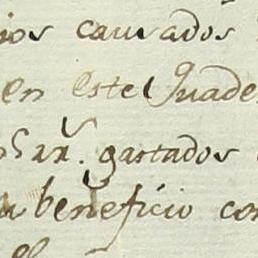 ios causados
en este Quade
gastados
beneficio con